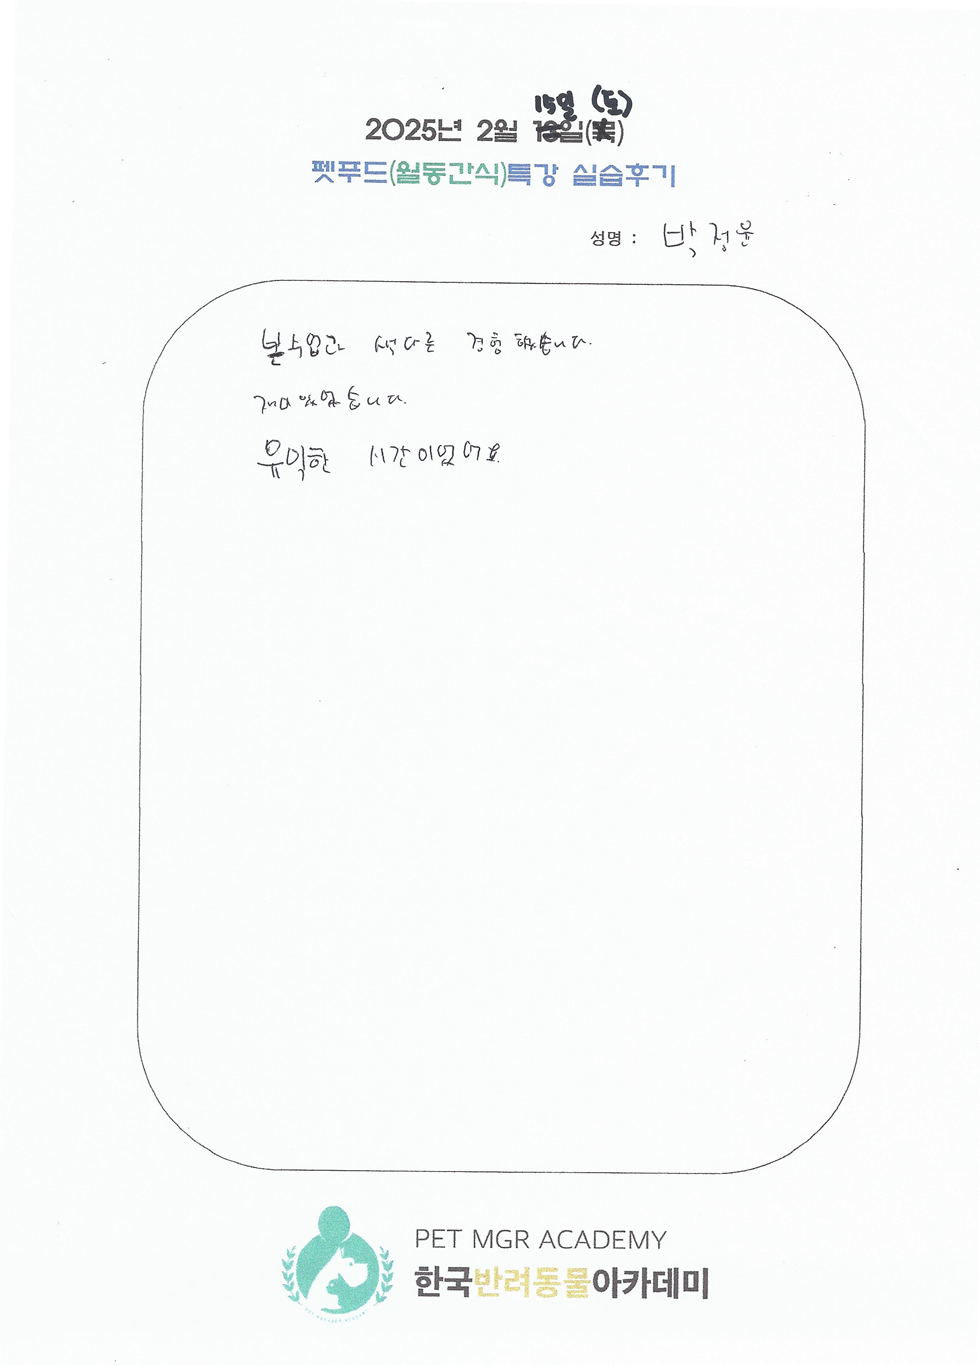 15일 (토)
2025년 2월 일()
펫푸드(월동간식)특강 실습후기
성명 : 박정윤
본수업과 색다른 경험했습니다.
재미있었습니다.
유익한 시간이었어요
PET MGR ACADEMY
한국반려동물아카데미